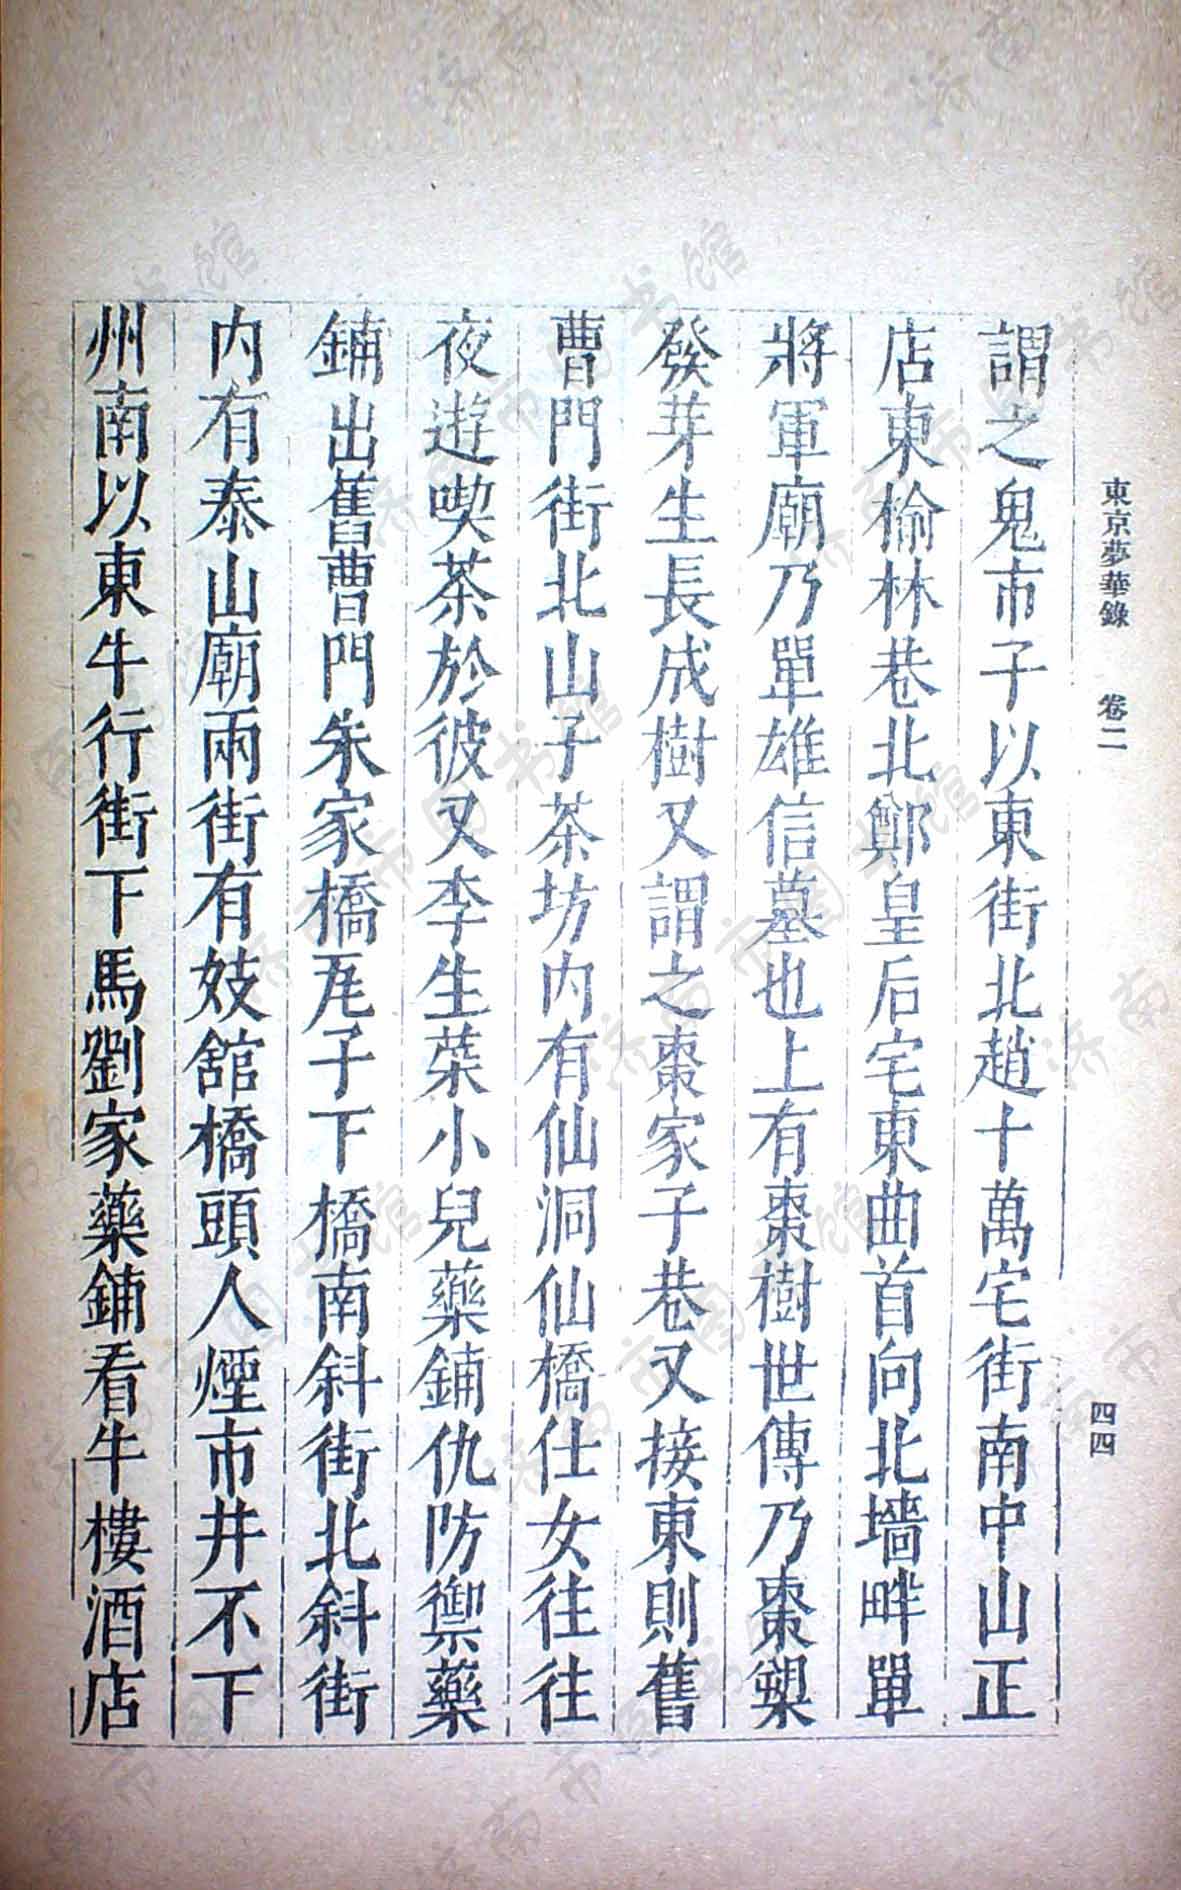 東京夢華錄 卷二 四四
謂之鬼市子以東街北趙十萬宅街南中山正
店東榆林巷北鄭皇后宅東曲首向北墻畔單
將軍廟乃單雄信墓也上有棗樹世傳乃棗槊
發芽生長成樹又謂之棗家子巷又接東則舊
曹門街北山子茶坊內有仙洞仙橋仕女往往
夜遊喫茶於彼又李生菜小兒藥鋪仇防禦藥
鋪出舊曹門朱家橋瓦子下橋南斜街北斜街
內有泰山廟兩街有妓舘橋頭人煙市井不下
州南以東牛行街下馬劉家藥鋪看牛樓酒店
濟南市图书馆